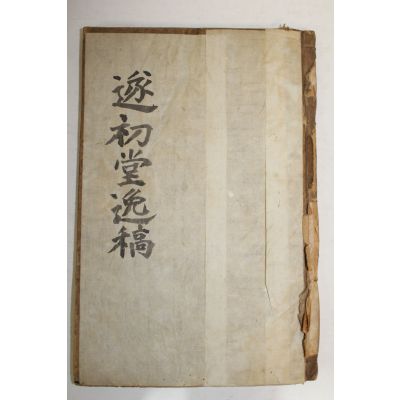 遂初堂逸稿